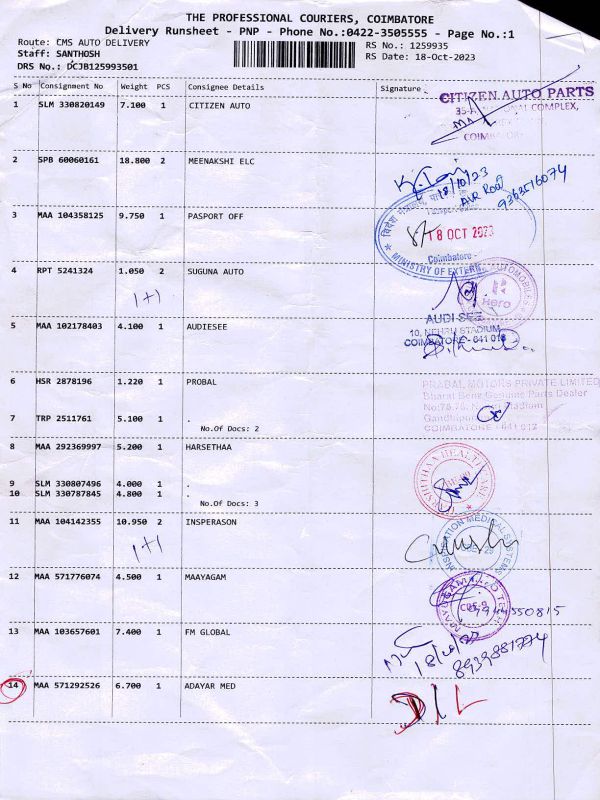 THE PROFESSIONAL COURIERS, COIMBATORE
Delivery Runsheet - PNP - Phone No.:0422-3505555 - Page No.:1
Route: CMS AUTO DELIVERY RS No.: 1259935
Staff: SANTHOSH RS Date: 18-Oct-2023
DRS No.: DCJB125993501
S No Consignment No Weight PCS Consignee Details Signature
1 SLM 330820149 7.100 1 CITIZEN AUTO
CITIZEN AUTO PARTS
COMPLEX,
2 SPB 60060161 18.800 2 MEENAKSHI ELC
18/10/23
9363516074
3 MAA 104358125 9.750 1 PASPORT OFF
18 OCT 2023
Coimbatore
MINISTRY OF
4 RPT 5241324 1.050 2 SUGUNA AUTO
1+1
Hero
5 MAA 102178403 4.100 1 AUDIESEE
AUDI SEE
10, NEHRU STADIUM
COIMBATORE - 641 018
6 HSR 2878196 1.220 1 PROBAL
PRABAL MOTORS PRIVATE LIMITED
Bharat Benz Genuine Parts Dealer
7 TRP 2511761 5.100 1 .
No.Of Docs: 2
8 MAA 292369997 5.200 1 HARSETHAA
9 SLM 330807496 4.000 1 .
10 SLM 330787845 4.800 1 .
No.Of Docs: 3
11 MAA 104142355 10.950 2 INSPERASON
1+1
MEDICAL SYSTEMS
12 MAA 571776074 4.500 1 MAAYAGAM
9944550815
13 MAA 103657601 7.400 1 FM GLOBAL
8939881774
14 MAA 571292526 6.700 1 ADAYAR MED